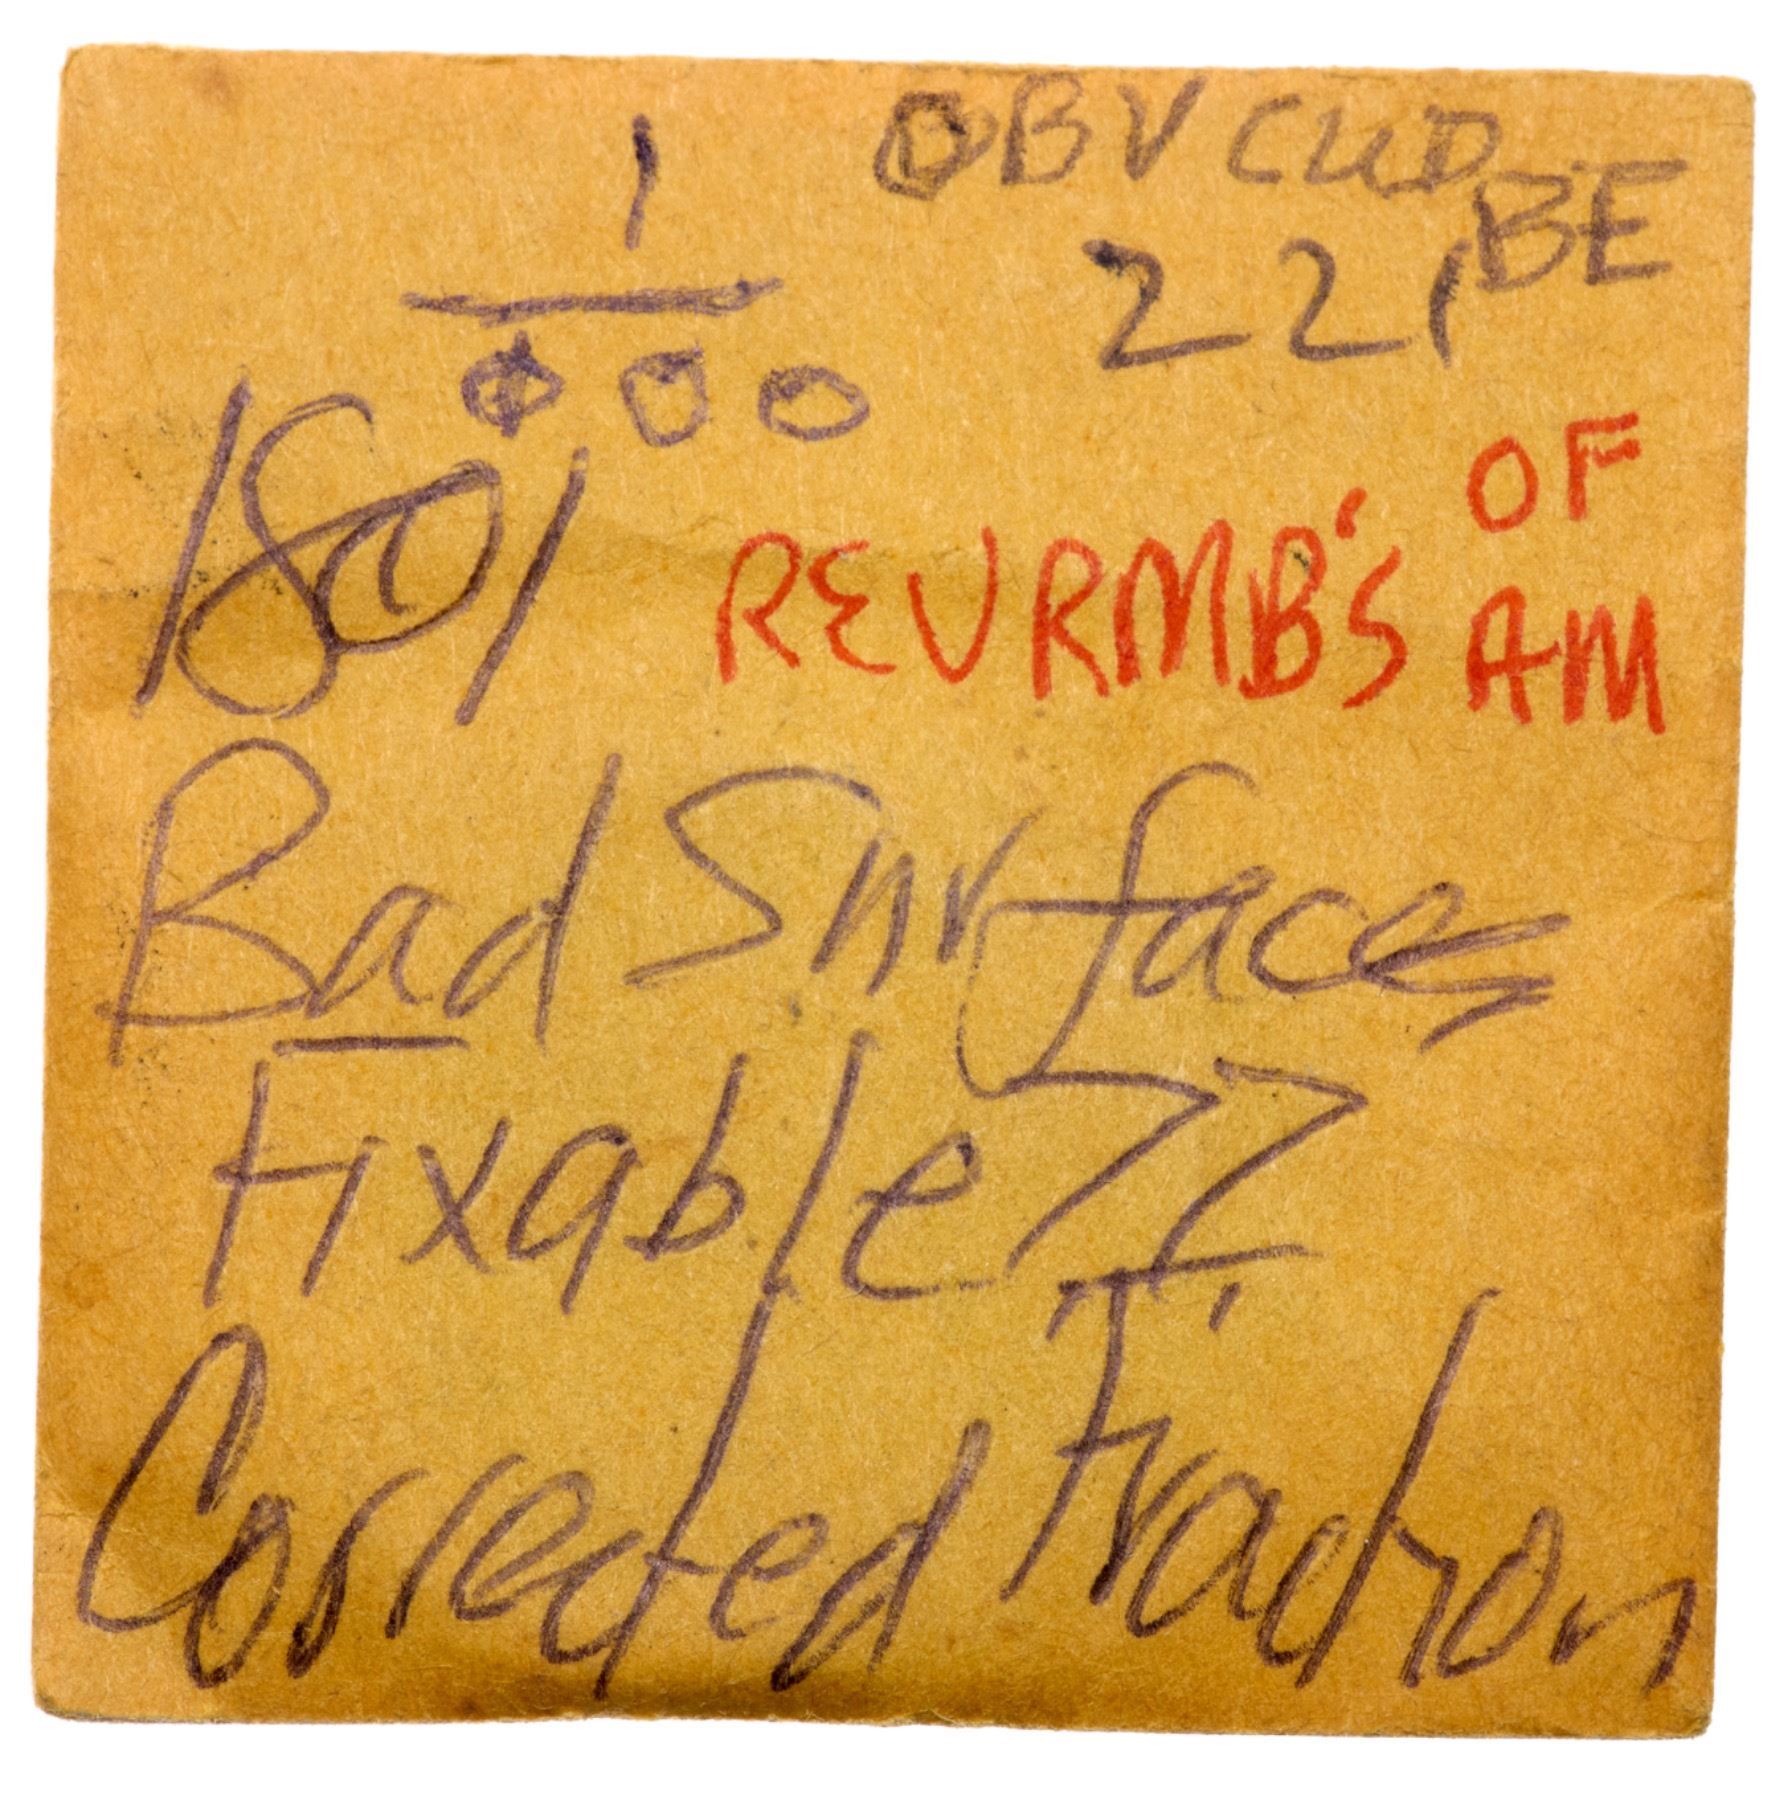 OBV CUD BE
1
000
221
1801
REV RMB'S OF AM
Bad Surfaces
Fixable??
Corrected Fraction